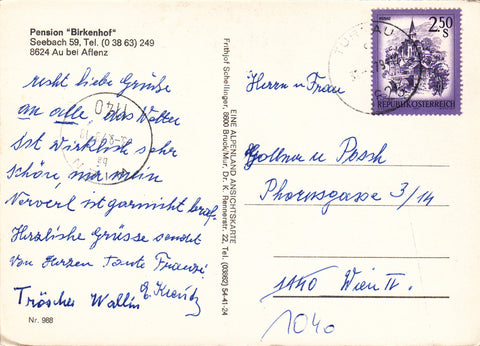 Pension "Birkenhof"
Seebach 59, Tel. (0 38 63) 249
8624 Au bei Aflenz
recht liebe Grüße
an alle, das Wetter
ist wirklich sehr
schön, nur mein
ist garnicht brav.
Herzliche Grüsse sendet
von Herzen Tante
Nr. 988
1140
EINE ALPENLAND ANSICHTSKARTE
Frithjof Schellinger, 8600 Bruck/Mur, Dr. K. Rennerstr. 22, Tel. (03862) 54-41-24
2.50 S
REPUBLIK ÖSTERREICH
Herrn u Frau
Gollner u Posch
Phorusgasse 3/14
1140 Wien IV.
1040